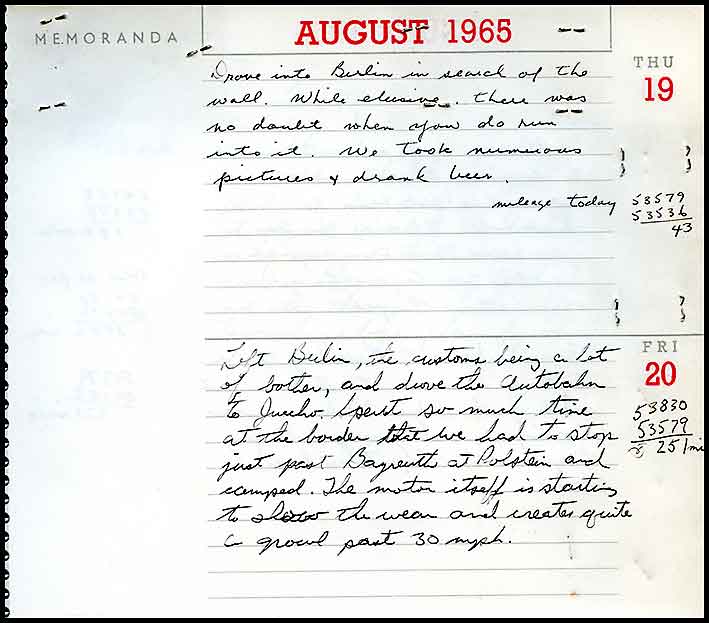 MEMORANDA
AUGUST 1965
THU
19
Drove into Berlin in search of the
wall. While elusive, there was
no doubt when you do run
into it. We took numerous
pictures & drank beer.
mileage today
53579
53536
43
FRI
20
Left Berlin, the customs being a lot
of bother, and drove the Autobahn
to spent so much time
at the border that we had to stop
just past Bayreuth at and
camped. The motor itself is starting
to show the wear and creates quite
a growl past 30 mph.
53830
53579
251 mi